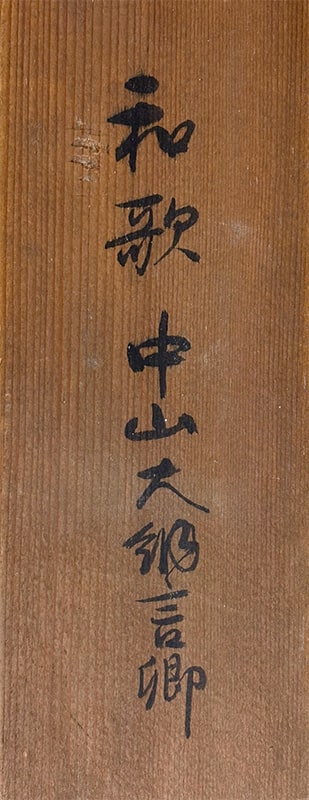 和歌 中山大納言卿